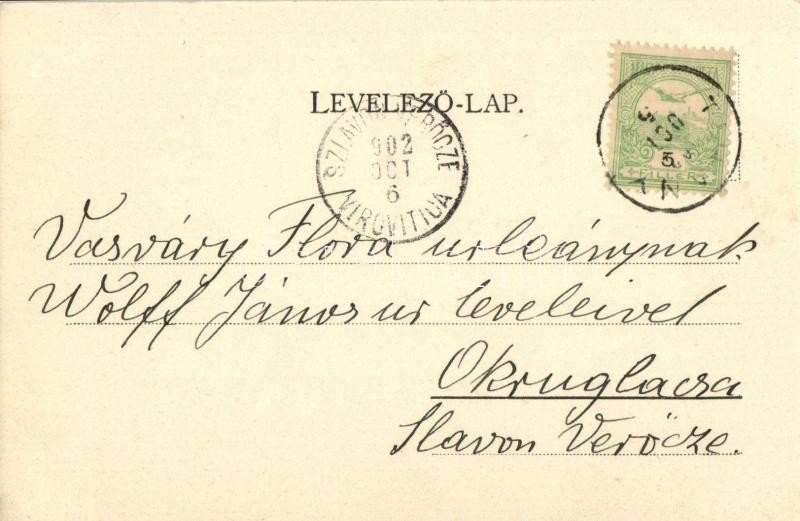 LEVELEZŐ-LAP.
SZLAVON VERŐCZE
902
OCT
6
VIROVITICA
5
FILLER
Vasváry Flora urleánynak
Wolff János ur leveleivel
Okruglacza
Slavon Verőcze.